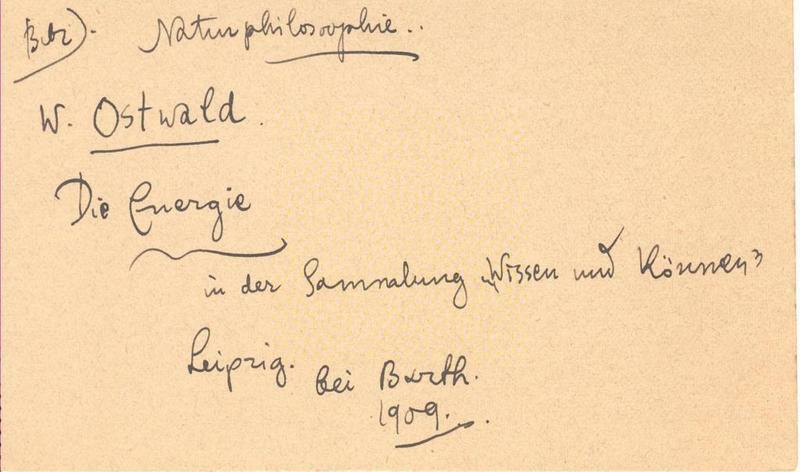 Naturphilosophie..
W. Ostwald.
Die Energie
in der Sammlung „Wissen und Können"
Leipzig. bei Barth.
1909..